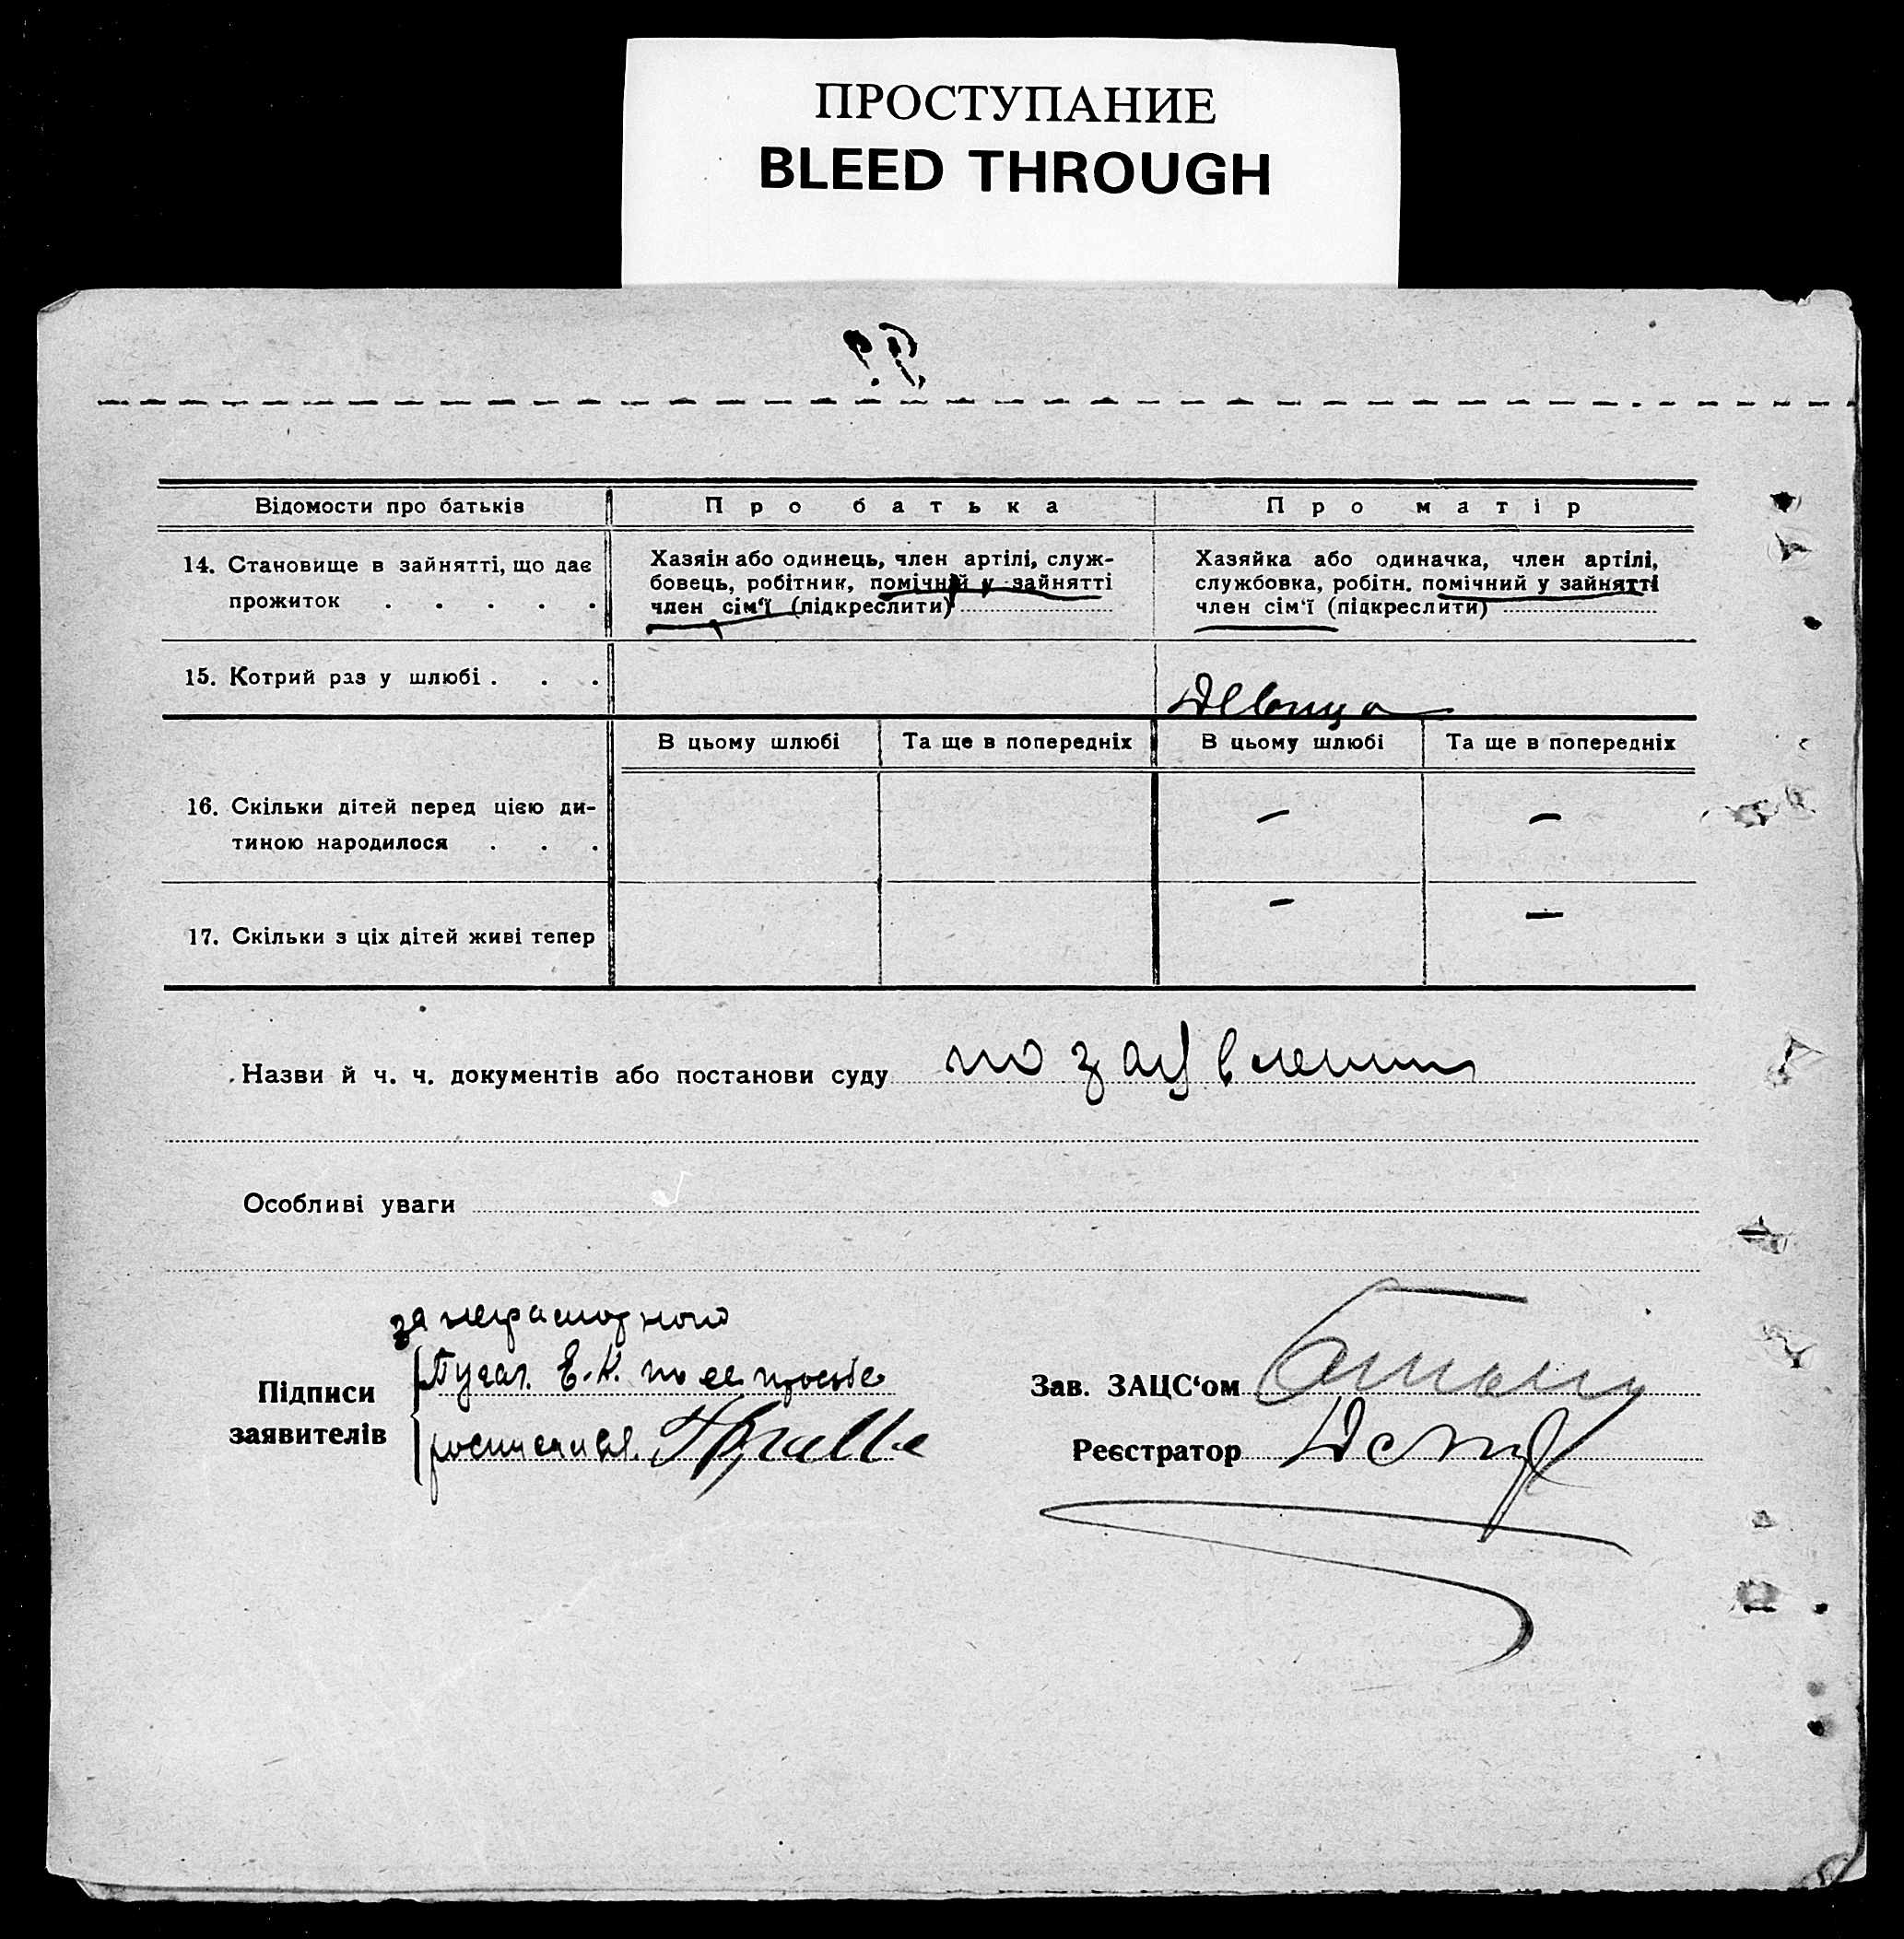 ПРОСТУПАНИЕ
BLEED THROUGH
Відомости про батьків
Про батька
Про матір
14. Становище в зайнятті, що дає
прожиток . . . . .
Хазяін або одинець, член артілі, служ-
бовець, робітник, помічний у зайнятті
член сім‘ї (підкреслити)
Хазяйка або одиначка, член артілі,
службовка, робітн. помічний у зайнятті
член сім‘ї (підкреслити)
15. Котрий раз у шлюбі . . .
Девица
В цьому шлюбі
Та ще в попередніх
В цьому шлюбі
Та ще в попередніх
16. Скільки дітей перед цією ди-
тиною народилося . . .
— —
17. Скільки з ціх дітей живі тепер
— —
Назви й ч. ч. документів або постанови суду по заявлению
Особливі уваги
за неграмотного
Підписи
заявителів
Е. К. по ее просьбе
росписался
Зав. ЗАЦС‘ом
Реєстратор